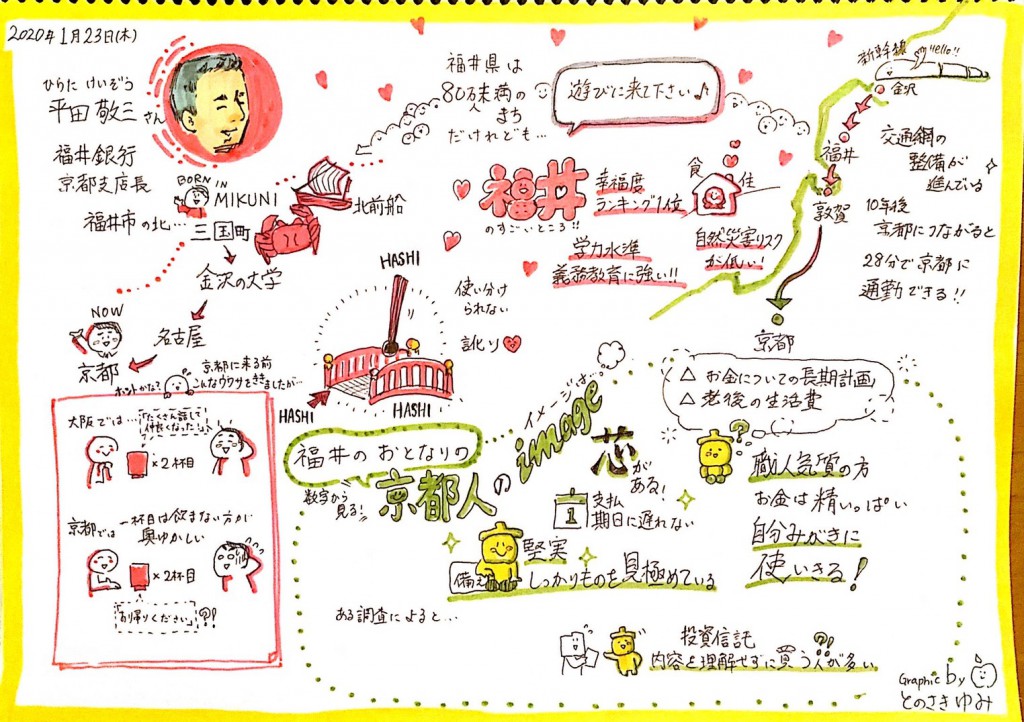 2020年1月23日(木)
ひらた けいぞう
平田 敬三 さん
福井銀行
京都支店長
BORN IN
MIKUNI
福井市の北…
三国町
北前船
金沢の大学
名古屋
NOW
京都
福井県は
80万人未満の
まち
だけれども…
遊びに来て下さい♪
福井
のすごいところ!!
幸福度
ランキング1位
食
住
学力水準
義務教育に強い!!
自然災害リスク
が低い!
新幹線
"Hello!!
金沢
福井
敦賀
京都
交通網の
整備が
進んでいる
10年後
京都につながると
28分で京都に
通勤できる!!
HASHI
HASHI
HASHI
使い分け
られない
訛り
ホントかな?
京都に来る前
こんなウワサをききましたが…
大阪では…
「たくさん話して
仲良くなった!」
×2杯目
京都では
一杯目は飲まない方が
奥ゆかしい
×2杯目
「お帰りください」
?!
福井のおとなりの
数字から
見る!!
京都人の
イメージは…
image
芯が
ある!
1
支払
期日に遅れない
備え
堅実
しっかりものを見極めている
△ お金についての長期計画
△ 老後の生活費
職人気質の方
お金は精いっぱい
自分みがきに
使いきる!
ある調査によると…
投資信託
内容を理解せずに買う人が多い
?!
Graphic by
とのさきゆみ